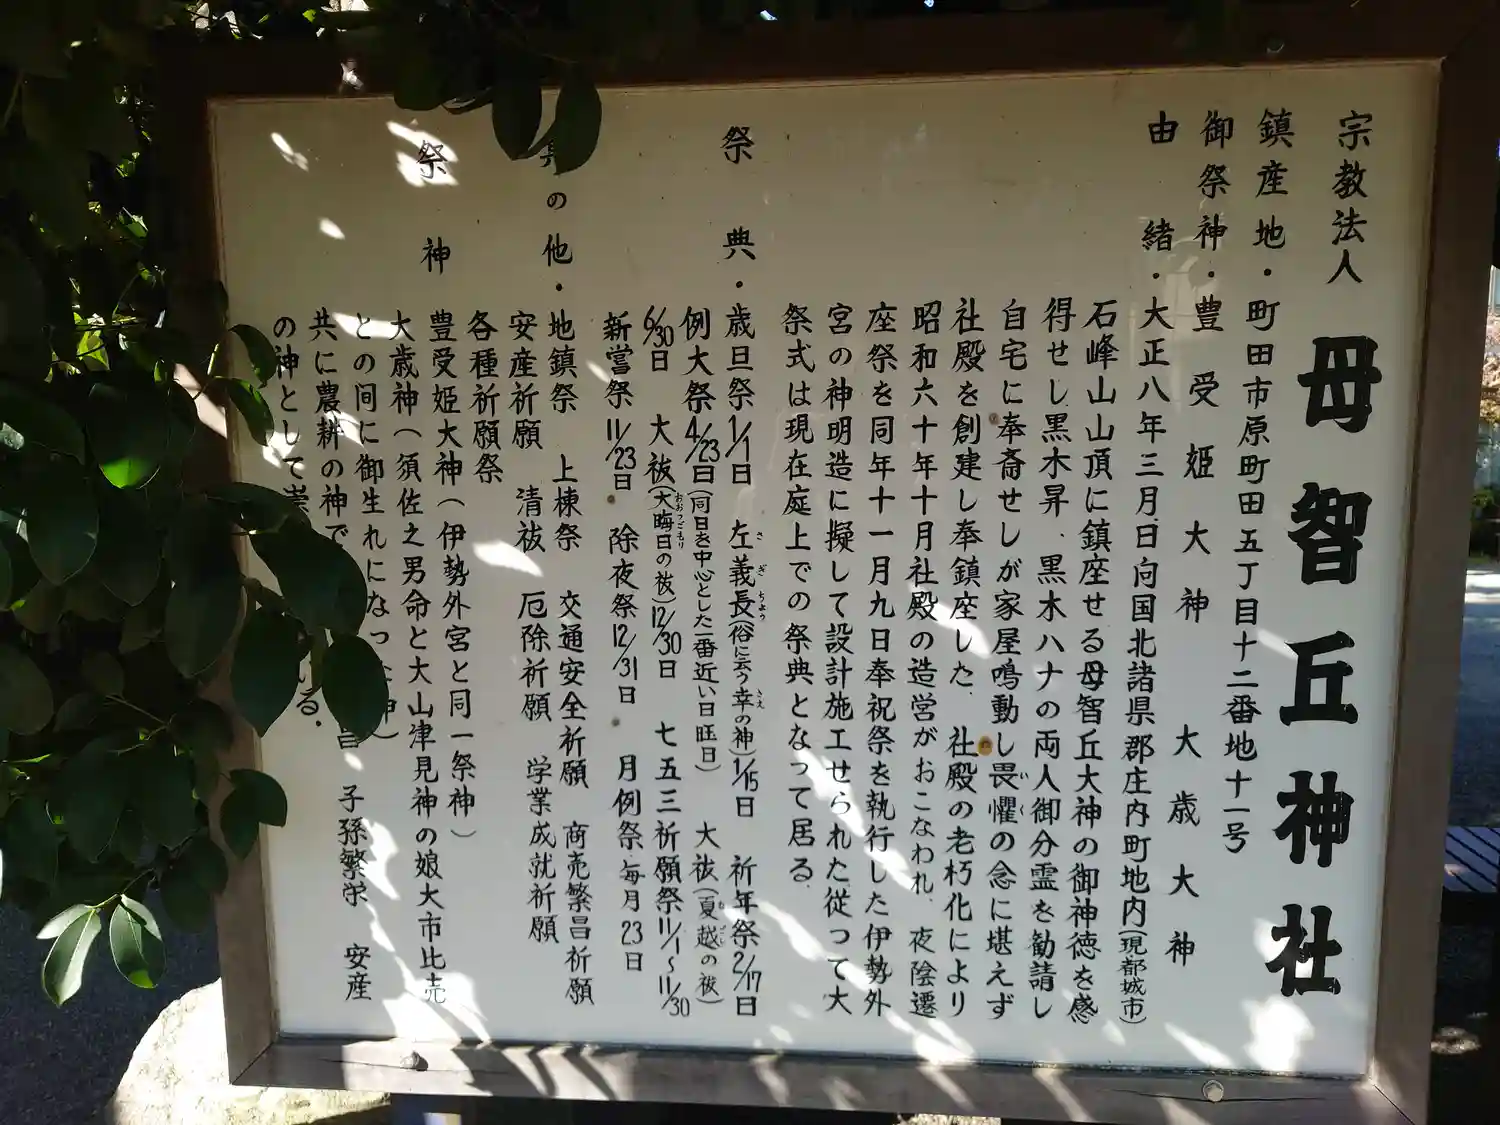 宗教法人 母智丘神社
鎮産地・町田市原町田五丁目十二番地十一号
御祭神・豊受姫大神 大歳大神
由緒・大正八年三月、日向国北諸県郡庄内町地内(現都城市)
石峰山山頂に鎮座せる母智丘大神の御神徳を感
得せし黒木昇、黒木ハナの両人御分霊を勧請し
自宅に奉斎せしが家屋鳴動し畏懼の念に堪えず
社殿を創建し奉鎮座した、社殿の老朽化により
昭和六十年十月社殿の造営がおこなわれ、夜陰遷
座祭を同年十一月九日奉祝祭を執行した伊勢外
宮の神明造に擬して設計施工せられた従って大
祭式は現在庭上での祭典となって居る
祭典・歳旦祭1/1日 左義長(俗に云う幸の神)1/15日 祈年祭2/17日
例大祭4/23日(同日を中心とした一番近い日曜日) 大祓(夏越の祓)
6/30日 大祓(大晦日の祓)12/30日 七五三祈願祭11/1〜11/30
新嘗祭11/23日・除夜祭12/31日・月例祭毎月23日
其の他・地鎮祭 上棟祭 交通安全祈願 商売繁昌祈願
安産祈願 清祓 厄除祈願 学業成就祈願
各種祈願祭
祭神 豊受姫大神(伊勢外宮と同一祭神)
大歳神(須佐之男命と大山津見神の娘大市比売
との間に御生れになった神)
共に農耕の神で 子孫繁栄 安産
の神として いる.